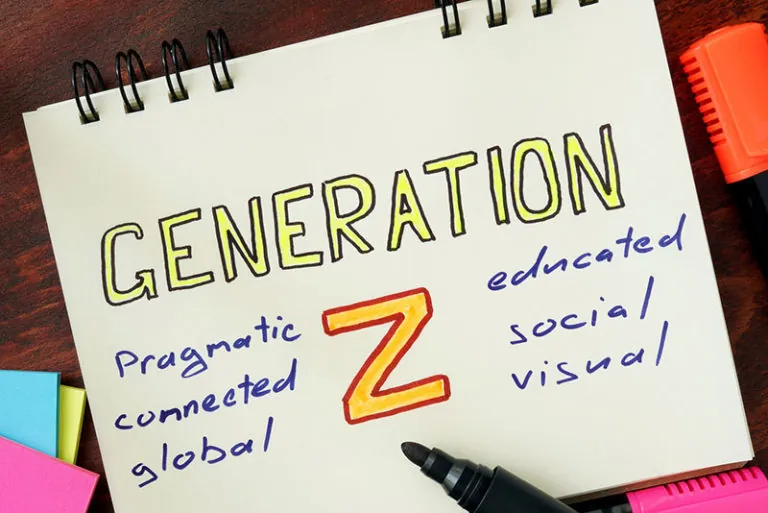 GENERATION
Z
Pragmatic
connected
global
educated
social
visual